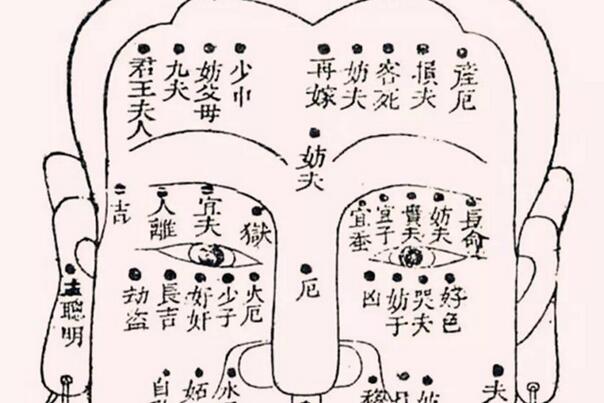 産厄
損夫
客死
妨夫
再嫁
妨父母
九夫
君王夫人
妨夫
長命
妨夫
貴夫
宜子
宜蚕
獄
宜夫
人離
吉
好色
哭夫
妨子
凶
厄
火厄
少子
奸
長吉
劫盗
聰明
夫
水
妬
自